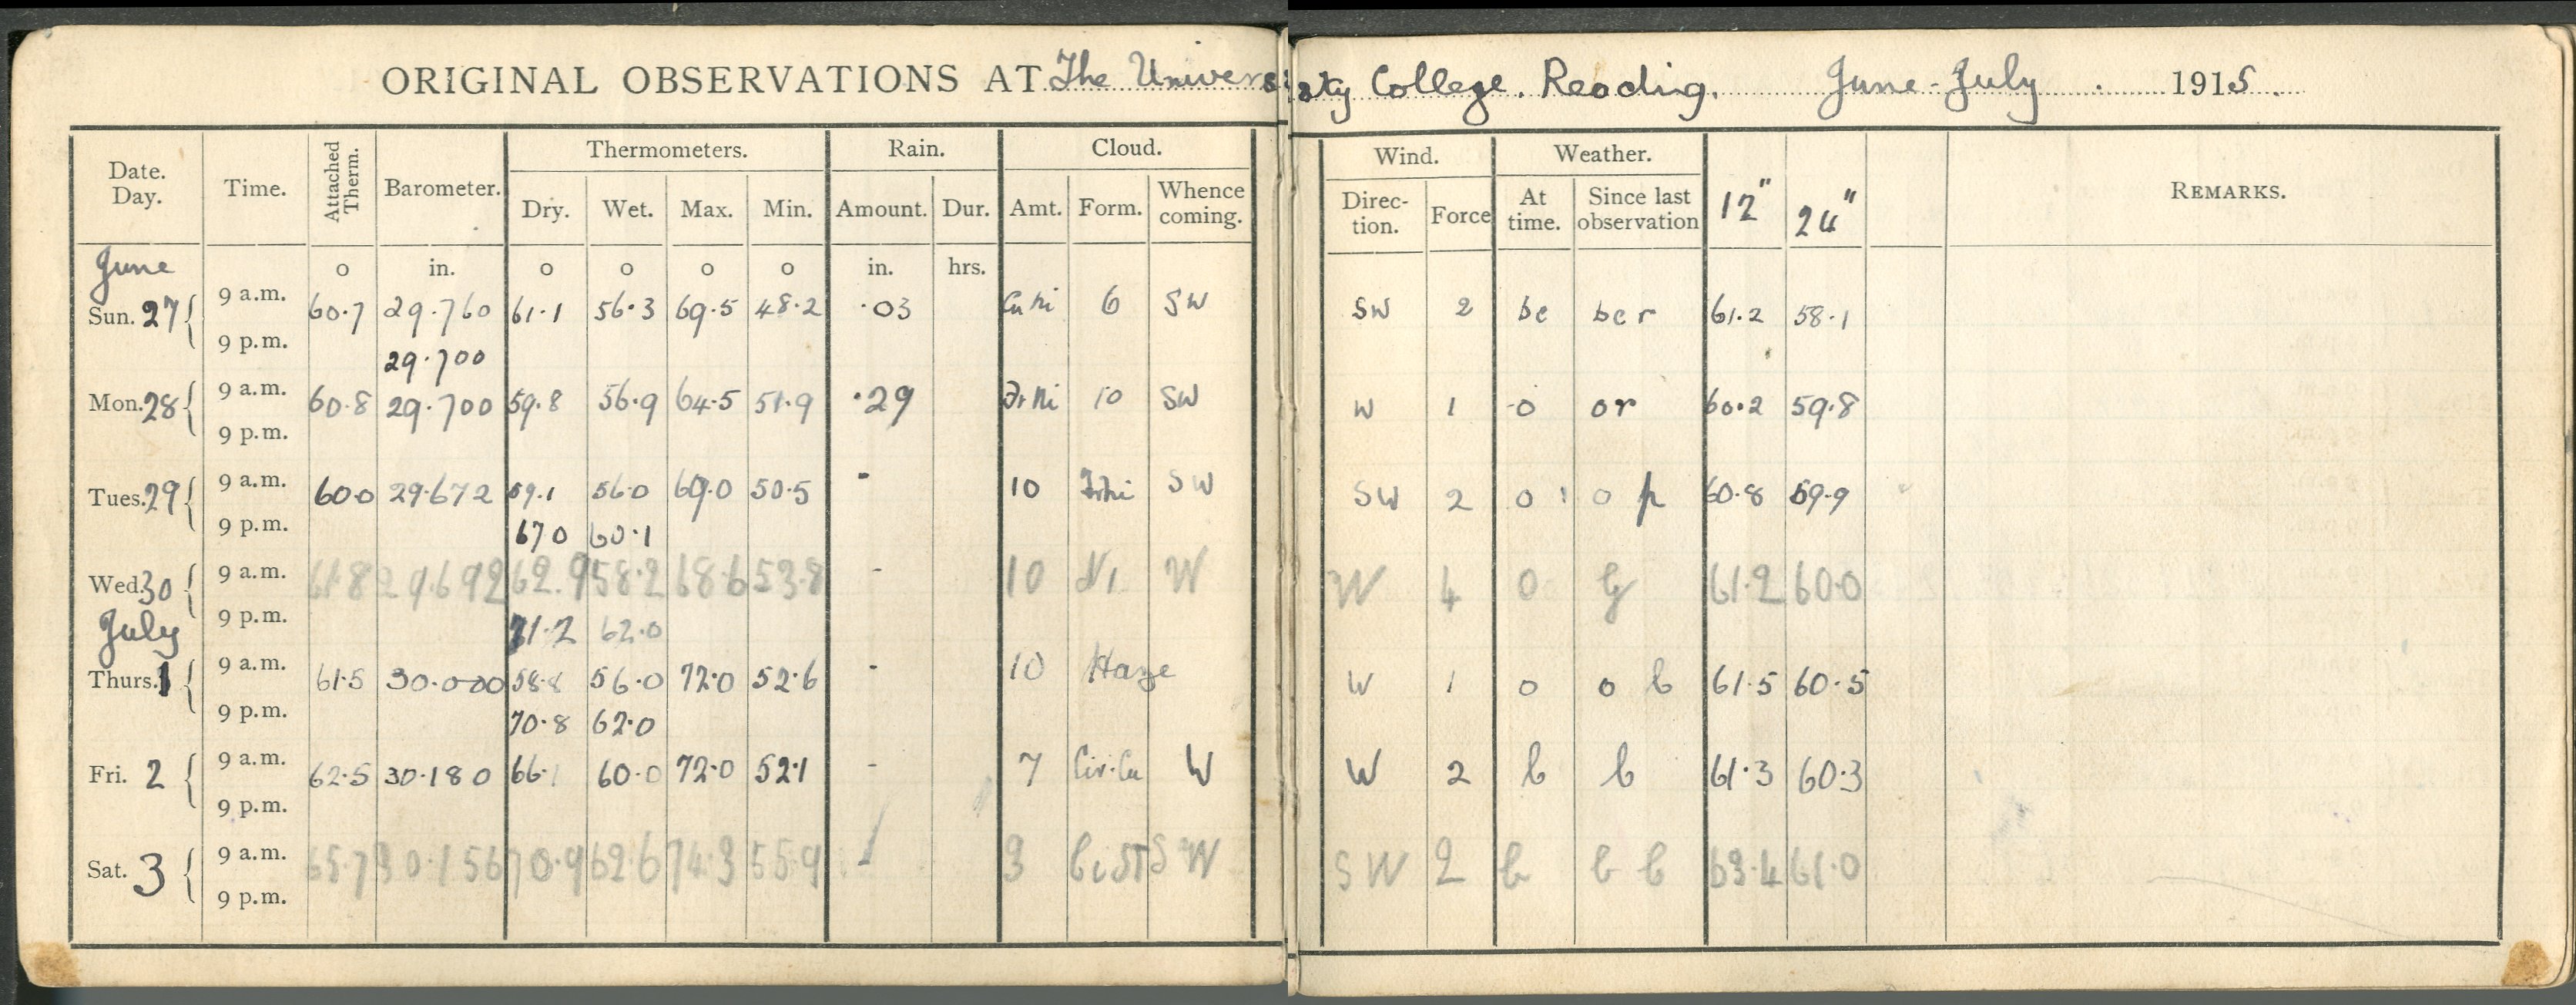 ORIGINAL OBSERVATIONS AT The University College. Reading. June-July 1915.
Date. Day. Time. Attached Therm. Barometer. Thermometers. Rain. Cloud. Wind. Weather. 12" 24" REMARKS.
Dry. Wet. Max. Min. Amount. Dur. Amt. Form. Whence coming. Direc-tion. Force At time. Since last observation
June o in. o o o o in. hrs.
Sun. 27 9 a.m. 60.7 29.760 61.1 56.3 69.5 48.2 .03 Cu Ni 6 SW SW 2 bc bcr 61.2 58.1
9 p.m. 29.700
Mon. 28 9 a.m. 60.8 29.700 59.8 56.9 64.5 51.9 .29 Fr Ni 10 SW W 1 o or 60.2 59.8
9 p.m.
Tues. 29 9 a.m. 60.0 29.672 59.1 56.0 69.0 50.5 - 10 SW SW 2 o o p 60.8 59.9
9 p.m. 67.0 60.1
Wed. 30 9 a.m. 61.8 29.692 62.9 58.2 68.6 53.8 - 10 Ni W W 4 o 61.2 60.0
9 p.m. 71.2 62.0
July
Thurs. 1 9 a.m. 61.5 30.000 58.8 56.0 72.0 52.6 - 10 Haze W 1 o o b 61.5 60.5
9 p.m. 70.8 62.0
Fri. 2 9 a.m. 62.5 30.180 66.1 60.0 72.0 52.1 - 7 Cir.Cu W W 2 b b 61.3 60.3
9 p.m.
Sat. 3 9 a.m. 65.7 30.156 70.9 62.6 74.3 55.9 - 3 Ci ST SW SW 2 b b b 63.4 61.0
9 p.m.